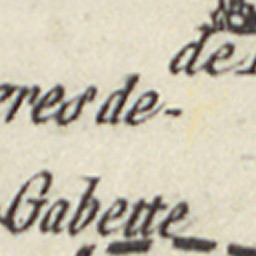 de
eres de-
Gabette